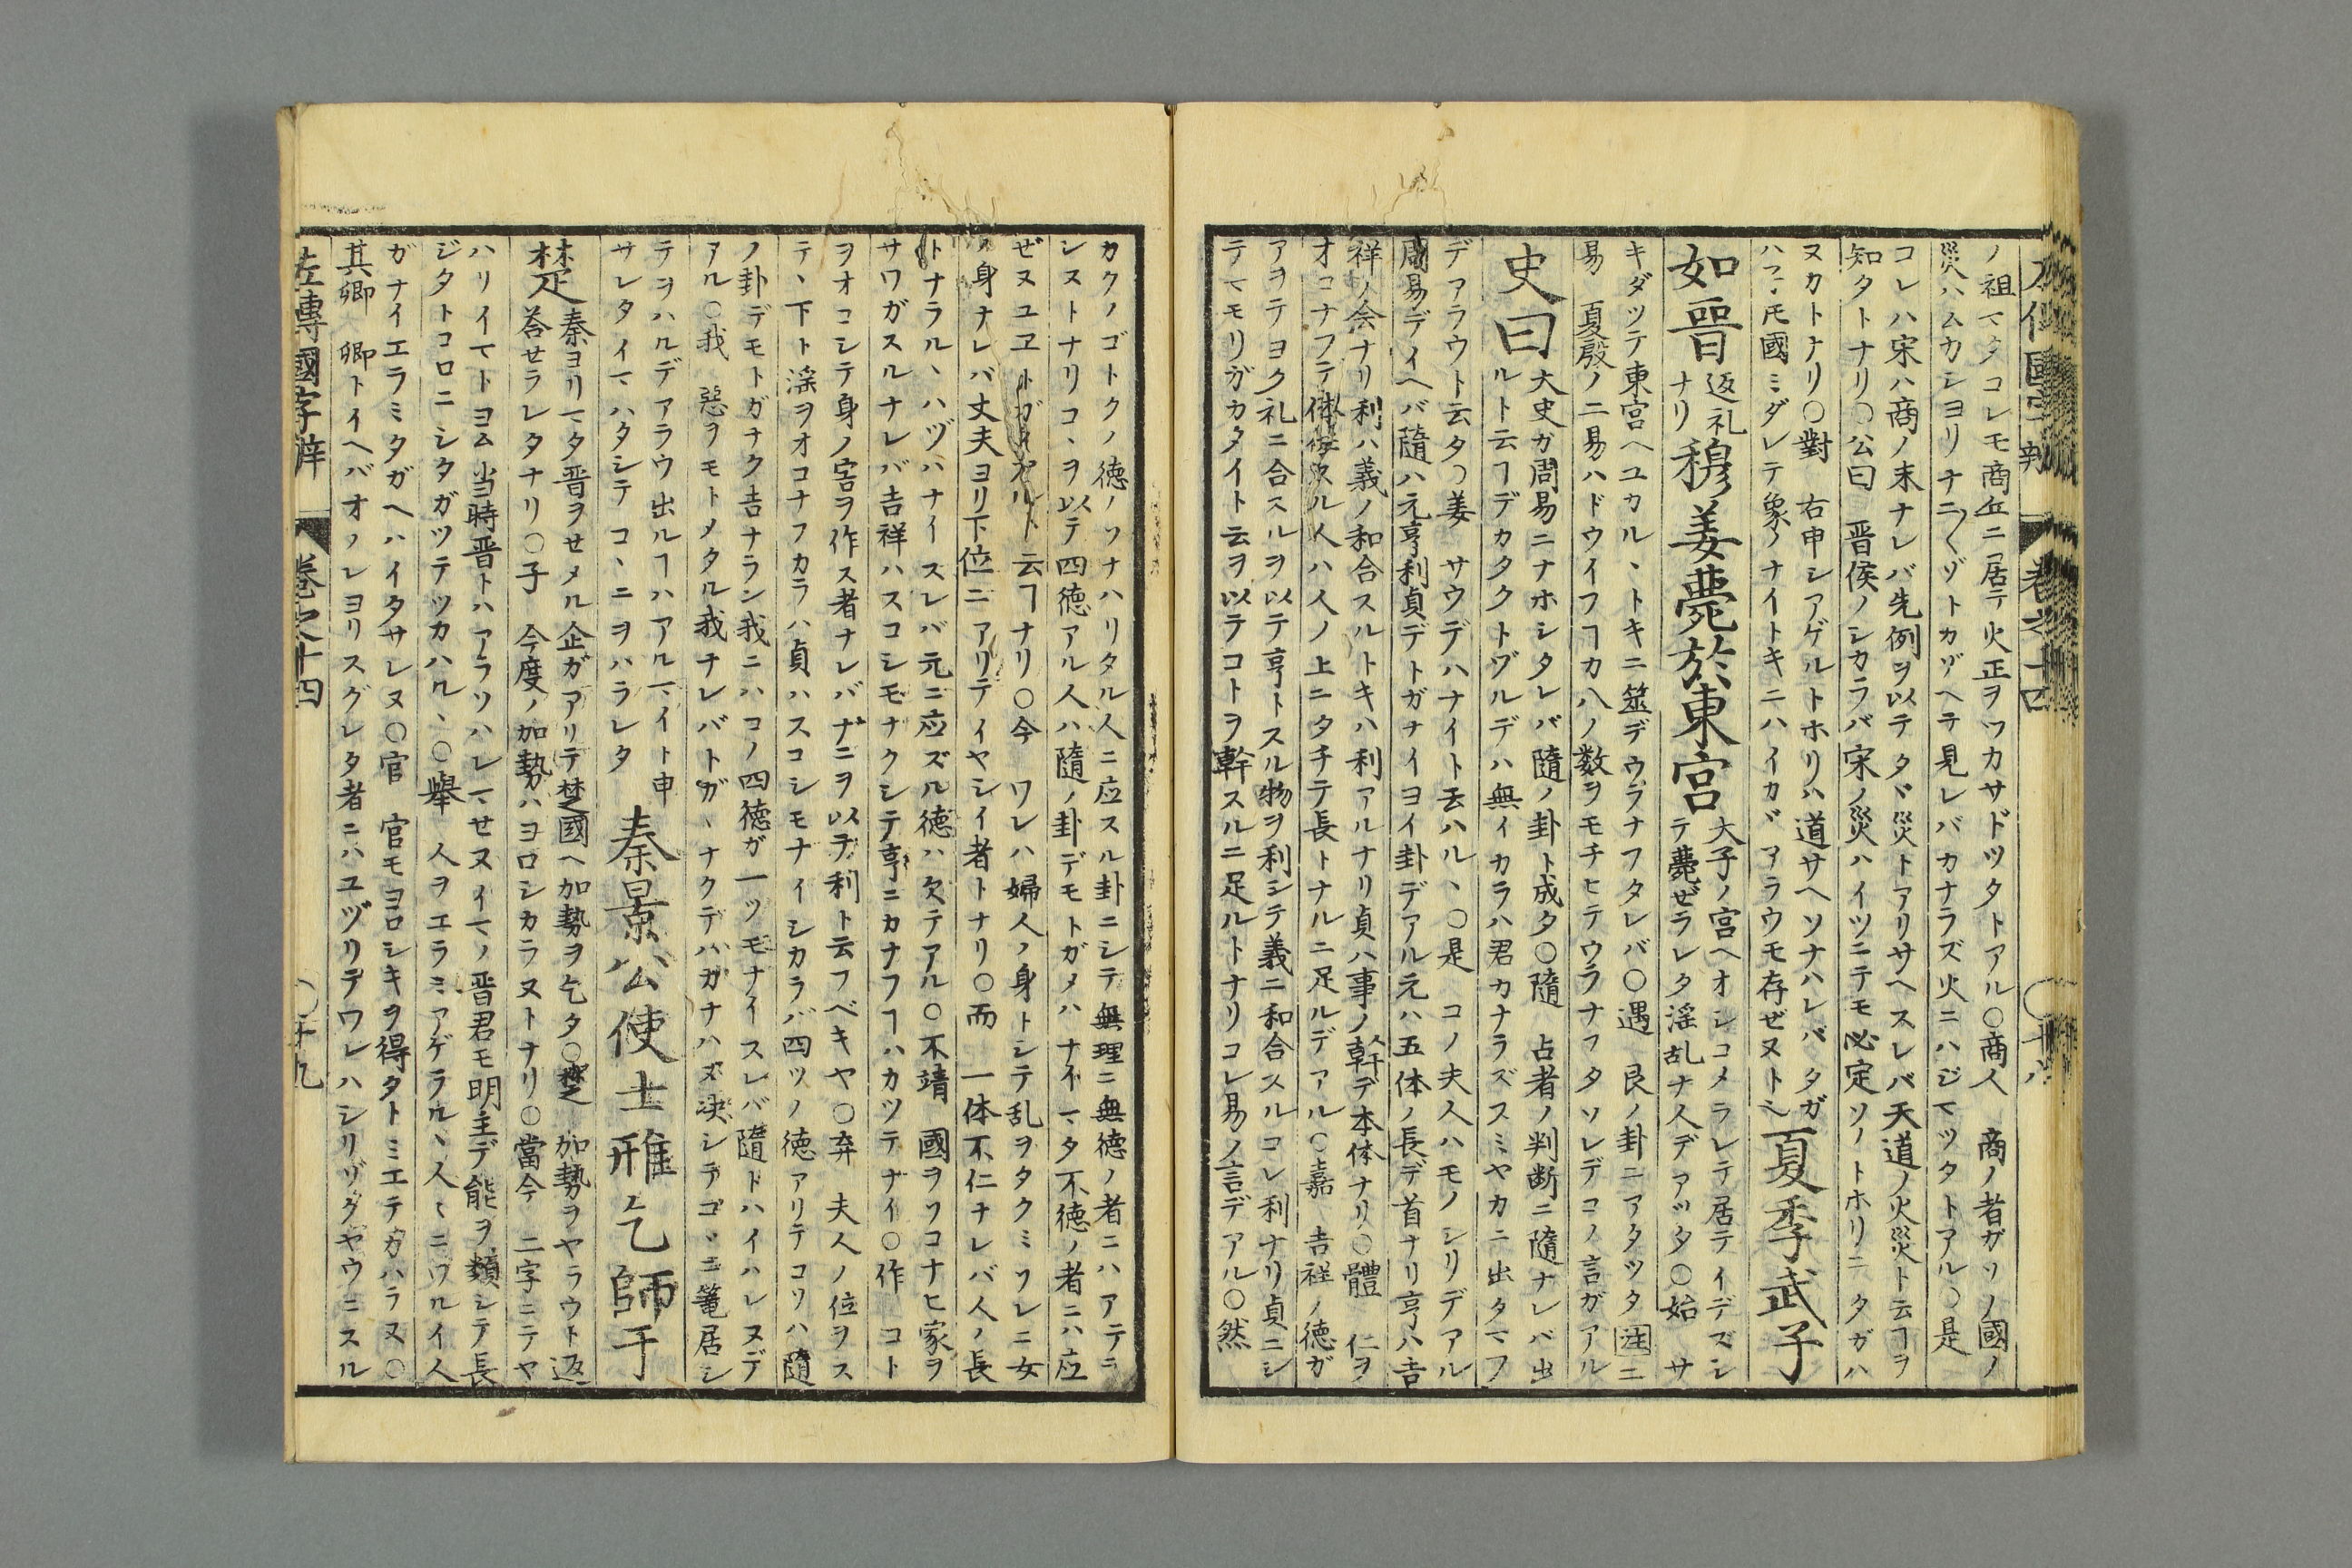 ノ祖マタコレモ商丘ニ居テ火正ヲツカサドツタトアル○商人　商ノ者ガソノ國ノ
災ハムカシヨリナニ〳〵ゾトカゾヘテ見レバカナラズ火ニハジマツタトアル○是
コレハ宋ハ商ノ末ナレバ先例ヲ以テタヾ災トアリサヘスレバ天道ノ火災ト云ヿヲ
知タトナリ○公曰　晋侯ノシカラバ宋ノ災ハイツニテモ必定ソノトホリニタガハ
ヌカトナリ○對　右申シアゲルトホリハ道サヘソナハレバタガ
ハフ、𪜈國ミダレテ象ノナイトキニハイカヾアラウモ存ぜヌト也
夏季武子
如晋
返礼
ナリ
穆姜薨於東宮
大子ノ宮ヘオシコメラレテ居テイデズシ
テ薨ぜラレタ淫乱ナ人デアツタ○始　サ
キダツテ東宮ヘユカル、トキニ筮デウラナフタレバ○遇　艮ノ卦ニアタツタ注ニ
易　夏殷ノ二易ハドウイフヿカ八ノ数ヲモチヒテウラナフタソレデコノ言ガアル
史曰
大史ガ周易ニナホシタレバ隨ノ卦ト成タ○隨　占者ノ判断ニ隨ナレバ出
ルト云ヿデカタクトヅルデハ無イカラハ君カナラズスミヤカニ出タマフ
デアラウト云タ○姜　サウデハナイト云ハル、○是　コノ夫人ハモノシリデアル
周易デイヘバ隨ハ元亨利貞デトガナイヨイ卦デアル元ハ五体ノ長デ首ナリ亨ハ吉
祥ノ会ナリ利ハ義ノ和合スルトキハ利アルナリ貞ハ事ノ幹デ本体ナリ○體　仁ヲ
オコナフテ体ル人ハ人ノ上ニタチテ長トナルニ足ルデアル○嘉　吉祥ノ徳ガ
アヲテヨク礼ニ合スルヲ以テ亨トスル物ヲ利シテ義ニ和合スルコレ利ナリ貞ニシ
テマモリガカタイト云ヲ以テコトヲ幹スルニ足ルトナリコレ易ノ言デアル○然
カクノゴトクノ徳ノソナハリタル人ニ应スル卦ニシテ無理ニ無徳ノ者ニハアテラ
シヌトナリコ、ヲ以テ四徳アル人ハ隨ノ卦デモトガメハナイマタ不徳ノ者ニハ应
ぜヌユヱトガイアルト云ヿナリ○今　ワレハ婦人ノ身トシテ乱ヲタクミソレニ女
ノ身ナレバ丈夫ヨリ下位ニアリテイヤシイ者トナリ○而　一体不仁ナレバ人ノ長
トナラル、ハヅハナイスレバ元ニ应ズル徳ハ欠テアル○不靖　國ヲソコナヒ家ヲ
サワガスルナレバ吉祥ハスコシモナクシテ亨ニカナフヿハカツテナイ○作　コト
ヲオコシテ身ノ害ヲ作ス者ナレバナニヲ以テ利ト云フベキヤ○弃　夫人ノ位ヲス
テ、下ト淫ヲオコナフカラハ貞ハスコシモナイシカラバ四ツノ徳アリテコソハ隨
ノ卦デモトガナク吉ナラン我ニハコノ四徳ガ一ツモナイスレバ隨ドハイハレヌデ
アル○我　惡ヲモトメタル我ナレバトガ、ナクデハガナハヌ决シテコ、ニ篭居シ
テヲハルデアラウ出ルヿハアルマイト申
サレタイマハタシテコ、ニヲハラレタ
秦景公使士雃乞師于
楚
秦ヨリマタ晋ヲせメル企ガアリテ楚國ヘ加勢ヲ乞タ○楚　加勢ヲヤラウト返
荅せラレタナリ○子　今度ノ加勢ハヨロシカラヌトナリ○當今　二字ニテヤ
ハリイマトヨム当時晋トハアラソハレマせヌイマノ晋君モ明主デ能ヲ類シテ長
ジタトコロニシタガツテツカハル、○舉　人ヲエラミアゲラル、人〻ニソルイ人
ガナイエラミタガヘハイタサレヌ○官　官モヨロシキヲ得タトミエテカハラヌ○
其卿　卿トイヘバオノレヨリスグレタ者ニハユヅリテワレハシリゾクヤウニスル
左傳國字辯　卷之十四　○十九